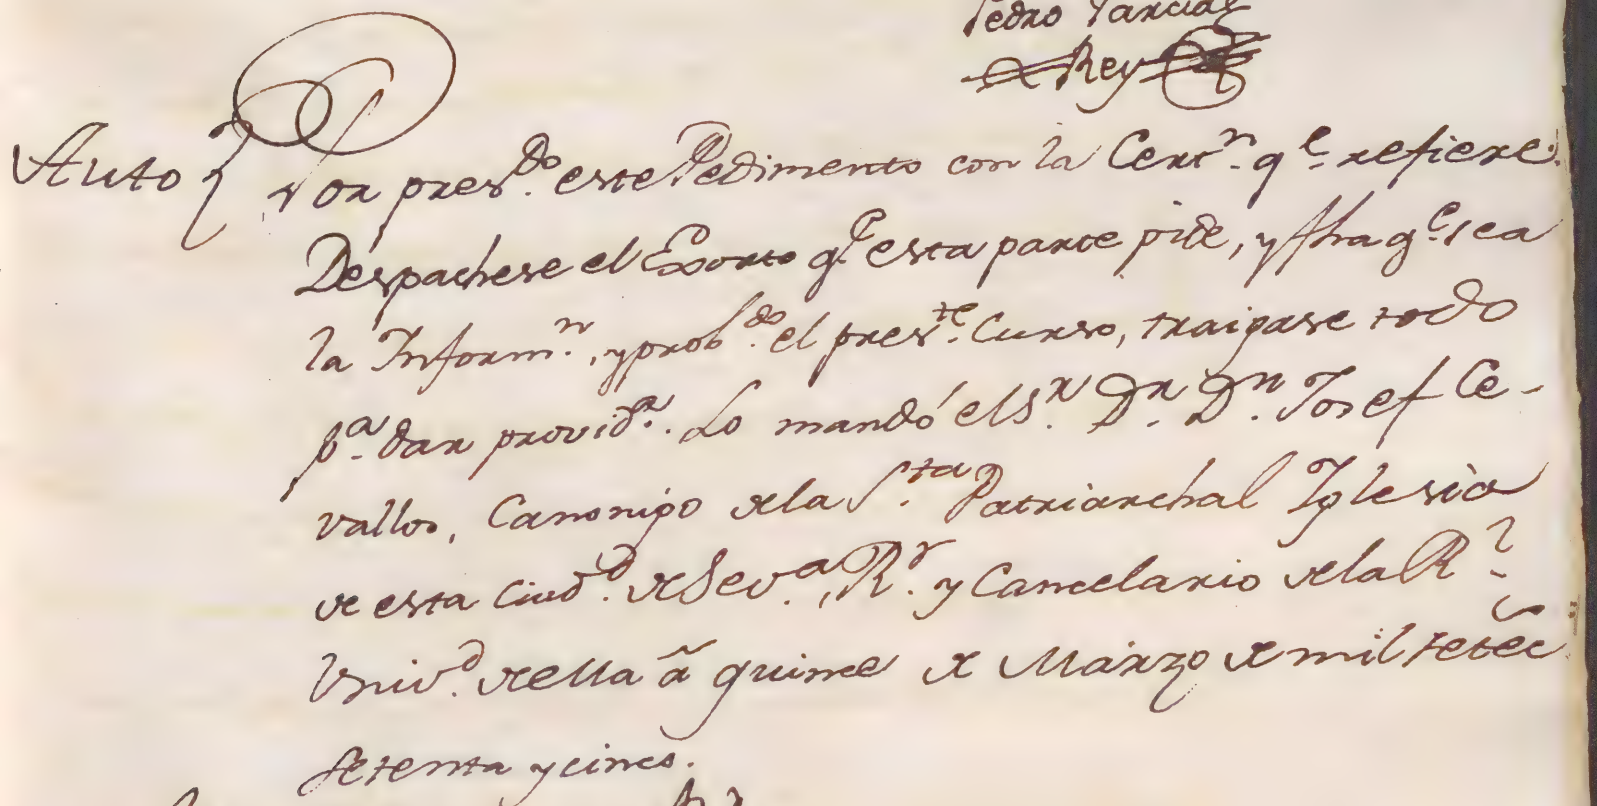 Pedro Garcia
Rey
Auto } Por pres.do este Pedimento con la Cert.n q.e refiere.
Despachese el Exorto q.e esta parte pide, y fha q.e sea
la Inform.n, y prob.do el pres.te Curso, traigase todo
p.a dar provid.a. Lo mandó el S.r D.r D.n Josef Ce-
vallos, Canonigo de la S.ta Patriarchal Iglesia
de esta Ciud.d de Sev.a, R.r y Cancelario de la R.l
Univ.d de ella à quince de Marzo de mil setec.s
setenta y cinco.